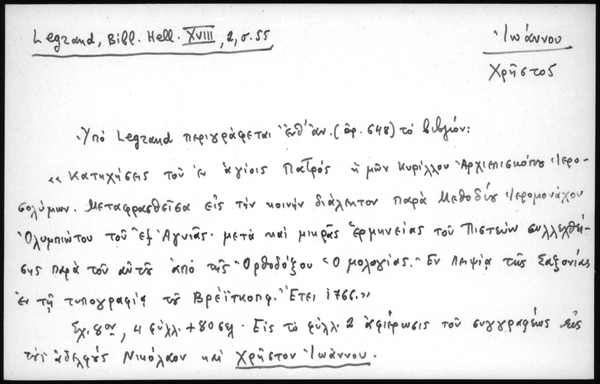 Legrand, Bibl. Hell. XVIII, 2, σ. 55
Ἰωάννου
Χρῆστος
Ὑπὸ Legrand περιγράφεται ἐνθ' ἀν. (ἀρ. 648) τὸ βιβλίον:
«Κατηχήσεις τοῦ ἐν ἁγίοις Πατρός ἡμῶν Κυρίλλου Ἀρχιεπισκόπου Ἱερο-
σολύμων. Μεταφρασθεῖσα εἰς τὴν κοινὴν διάλεκτον παρὰ Μεθοδίου Ἱερομονάχου
Ὀλυμπιώτου τοῦ ἐξ Ἁγνιᾶς· μετὰ καὶ μικρᾶς ἑρμηνείας τοῦ Πιστεύω συλλεχθεί-
σης παρὰ τοῦ αὐτοῦ ἀπὸ τῆς Ὀρθοδόξου Ὁμολογίας. Ἐν Λειψίᾳ τῆς Σαξονίας
ἐν τῇ τυπογραφίᾳ τοῦ Βρεϊτκοπφ. Ἔτει 1766.»
Σχ. 8ον, 4 φύλλ. + 80 σελ. Εἰς τὸ φύλλ. 2 ἀφιέρωσις τοῦ συγγραφέως εἰς
τοὺς ἀδελφοὺς Νικόλαον καὶ Χρῆστον Ἰωάννου.